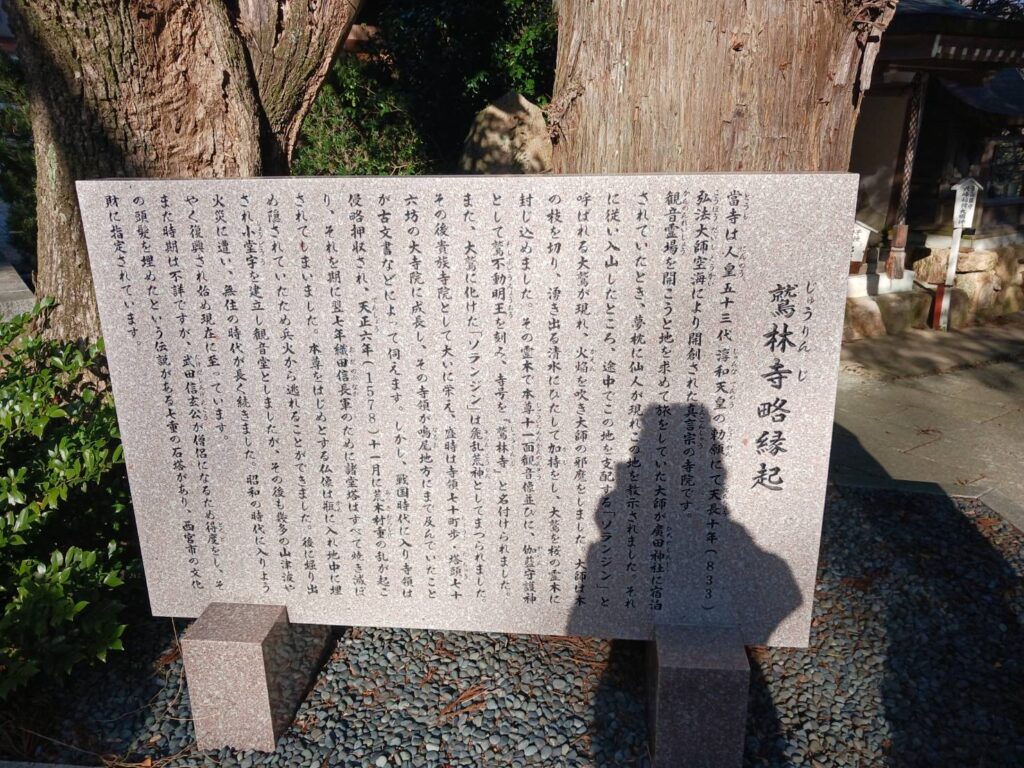 じゅうりんじ
鷲林寺略縁起
當寺は人皇五十三代 淳和天皇の勅願にて天長十年(833)
弘法大師空海により開創された真言宗の寺院です
観音霊場を開こうと地を求めて旅をしていた大師が廣田神社に宿泊
されていたとき、夢枕に仙人が現れこの地を教示されました。それ
に従い入山したところ、途中でこの地を支配する「ソランジン」と
呼ばれる大鷲が現れ、火焰を吹き大師の邪魔をしました 大師は木
の枝を切り、湧き出る清水にひたして加持をし、大鷲を桜の霊木に
封じ込めました その霊木で本尊十一面観音 並びに、伽藍守護神
として鷲不動明王を刻み、寺号を「鷲林寺」と名付けられました。
また、大鷲に化けた「ソランジン」は麁乱荒神としてまつられました
その後貴族寺院として大いに栄え、盛時は寺領七十町歩、塔頭七十
六坊の大寺院に成長し、その寺領が鳴尾地方にまで及んでいたこと
が古文書などによって伺えます。しかし、戦国時代に入り寺領は
侵略押収され、天正六年(1578)十一月に荒木村重の乱が起こ
り、それを期に翌七年織田信長軍のために諸堂塔はすべて焼き滅ぼ
されてしまいました。本尊をはじめとする仏像は瓶に入れ地中に埋
め隠されていたため兵火から逃れることができました。後に掘り出
され小堂宇を建立し観音堂としましたが、その後も幾多の山津波や
火災に遭い、無住の時代が長く続きました。昭和の時代に入りよう
やく復興され始め現在に至っています。
また時期は不詳ですが、武田信玄公が僧侶になるため得度をし、そ
の頭髪を埋めたという伝説がある七重の石塔があり、西宮市の文化
財に指定されています